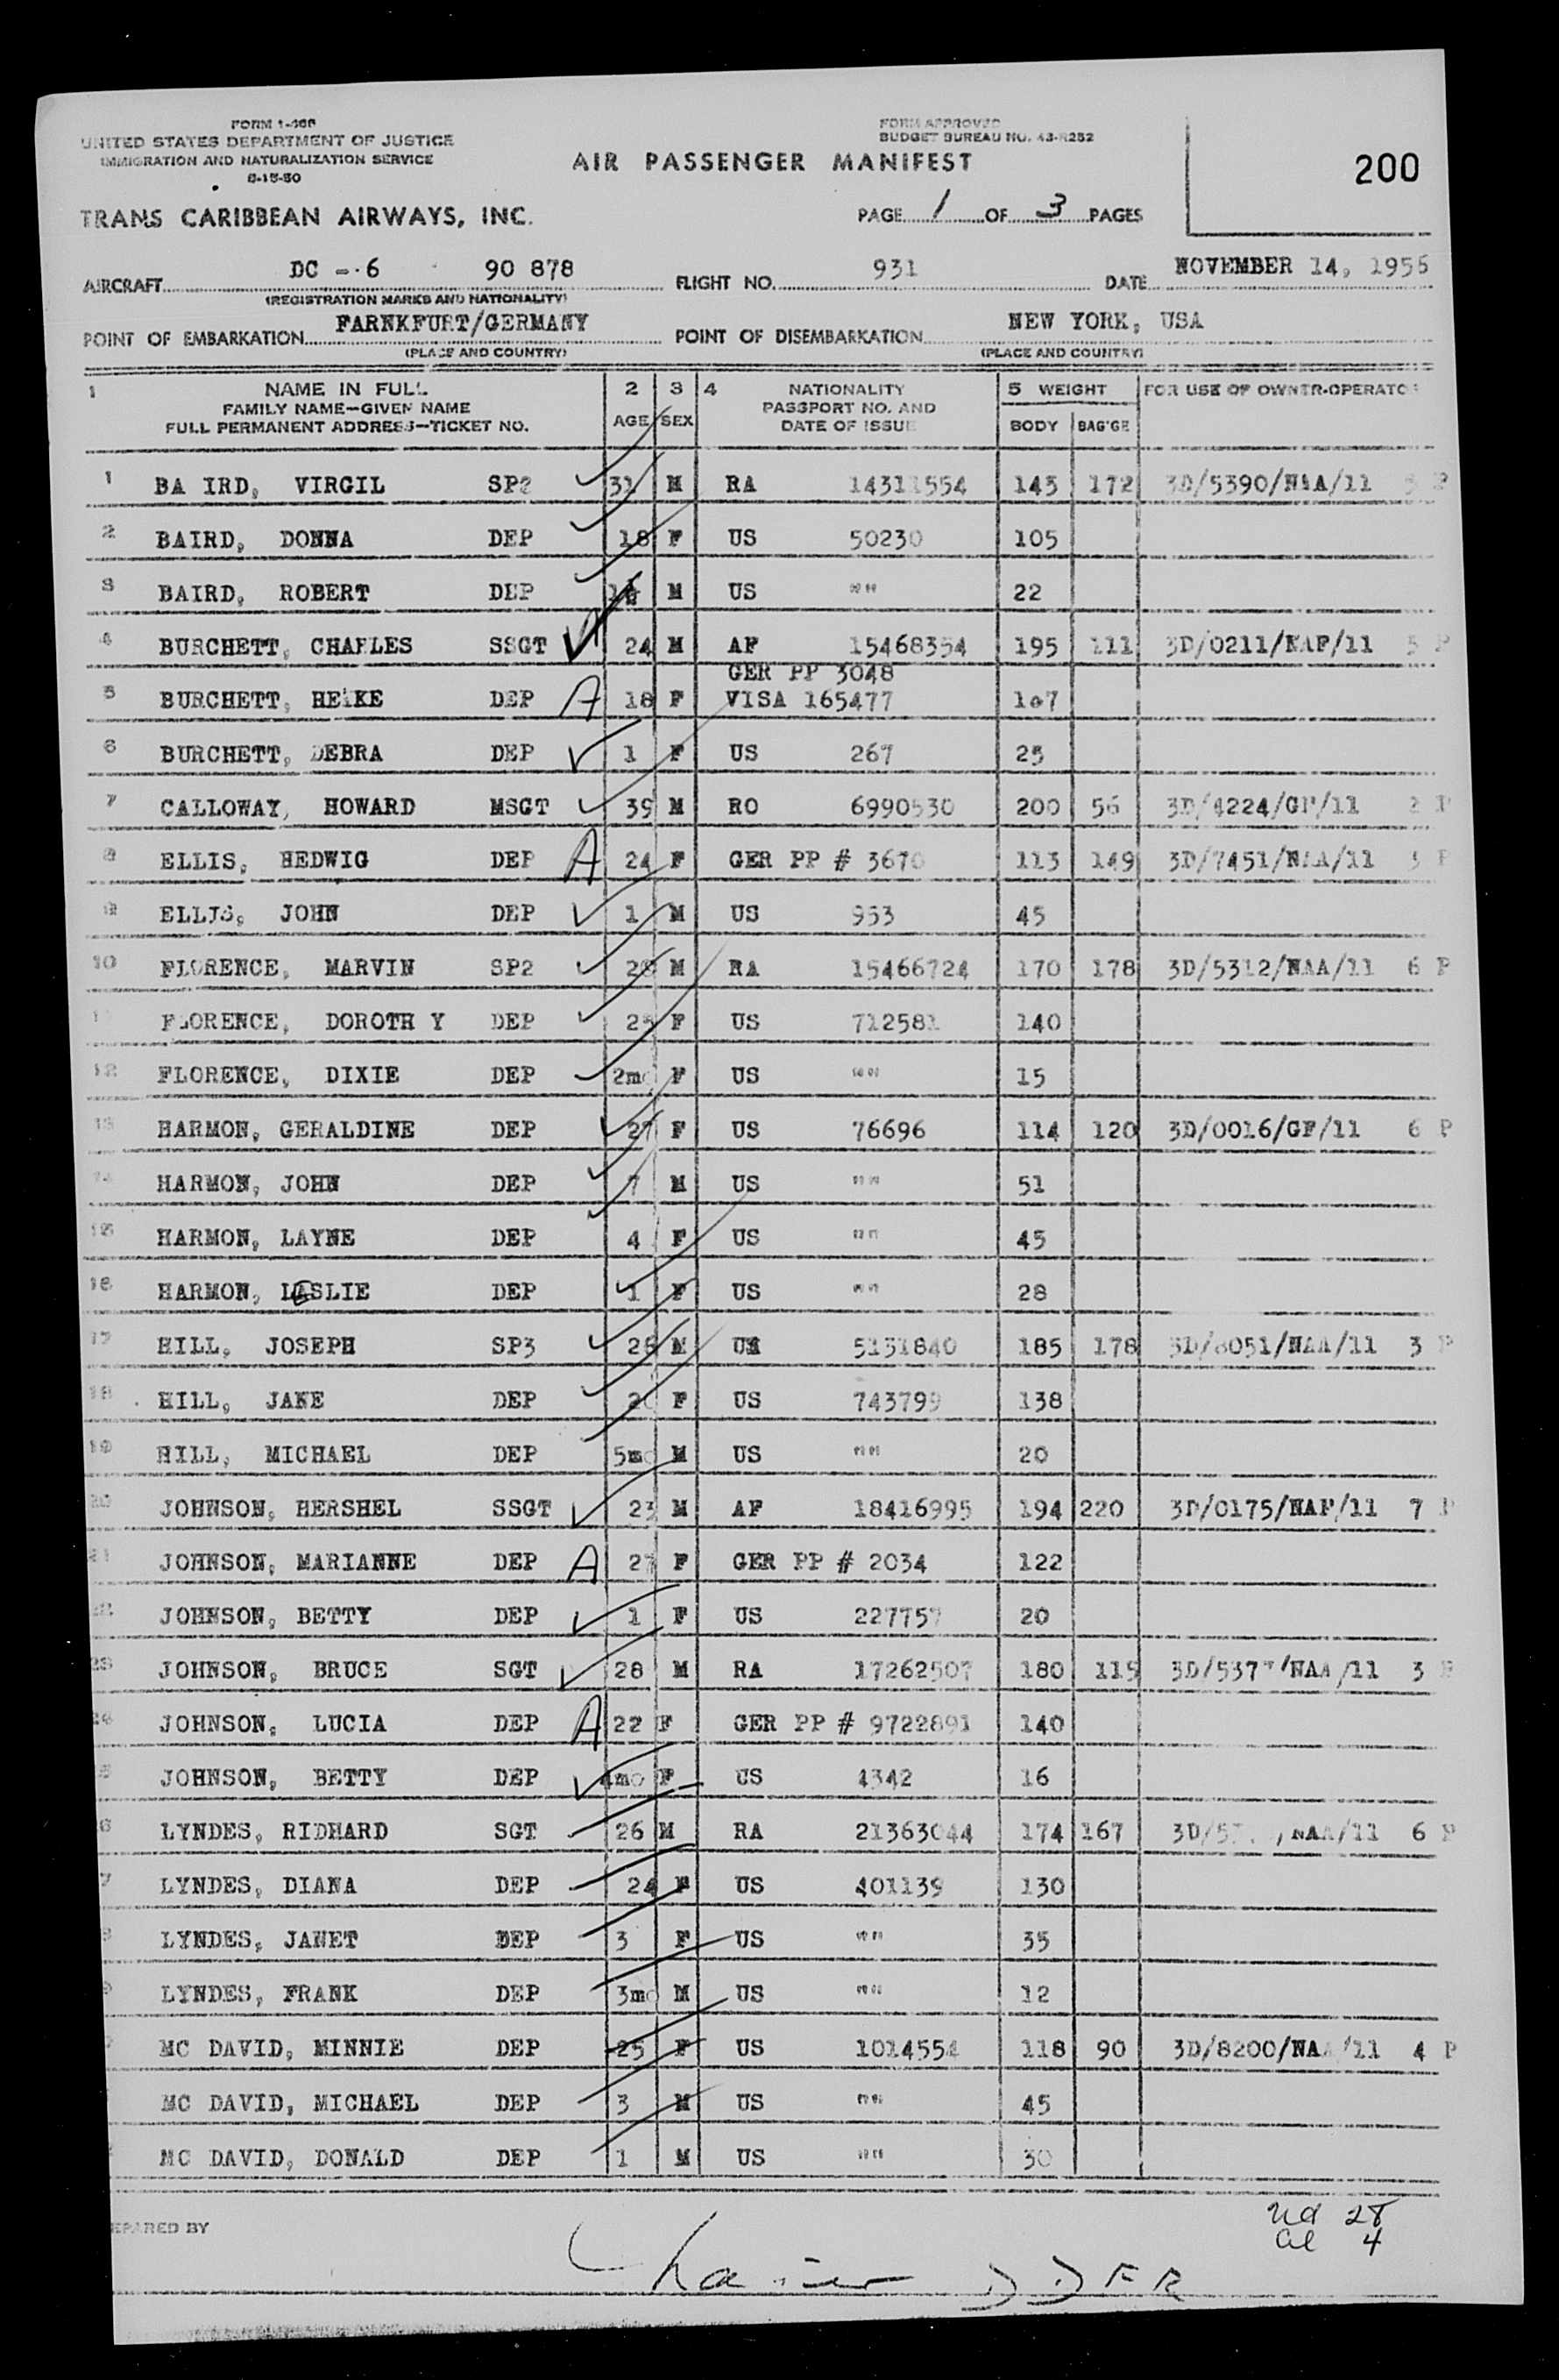 FORM I-466
UNITED STATES DEPARTMENT OF JUSTICE
IMMIGRATION AND NATURALIZATION SERVICE
8-15-50
FORM APPROVED
BUDGET BUREAU NO. 43-R252
AIR PASSENGER MANIFEST
200
TRANS CARIBBEAN AIRWAYS, INC.
PAGE 1 OF 3 PAGES
AIRCRAFT DC - 6 90 878 FLIGHT NO. 931 DATE NOVEMBER 14, 1956
(REGISTRATION MARKS AND NATIONALITY)
POINT OF EMBARKATION FARNKFURT/GERMANY POINT OF DISEMBARKATION NEW YORK, USA
(PLACE AND COUNTRY) (PLACE AND COUNTRY)
1 NAME IN FULL 2 3 4 NATIONALITY 5 WEIGHT FOR USE OF OWNER-OPERATO
FAMILY NAME—GIVEN NAME PASSPORT NO. AND
FULL PERMANENT ADDRESS—TICKET NO. AGE SEX DATE OF ISSUE BODY BAG'GE
1 BA IRD, VIRGIL SP2 31 M RA 14311554 143 172 3D/5390/NAA/11
2 BAIRD, DONNA DEP 18 F US 50230 105
3 BAIRD, ROBERT DEP M US "" 22
4 BURCHETT, CHARLES SSGT 24 M AF 15468354 195 111 3D/0211/NAF/11 5 P
GER PP 3048
5 BURCHETT, HEIKE DEP A 18 F VISA 165477 107
6 BURCHETT, DEBRA DEP 1 F US 267 25
7 CALLOWAY, HOWARD MSGT 39 M RO 6990530 200 56 3D/4224/GF/11 2 P
8 ELLIS, HEDWIG DEP A 24 F GER PP # 3670 113 149 3D/7451/NAA/11 3 P
9 ELLIS, JOHN DEP 1 M US 953 45
10 FLORENCE, MARVIN SP2 28 M RA 15466724 170 178 3D/5312/NAA/11 6 P
11 FLORENCE, DOROTH Y DEP 25 F US 712581 140
12 FLORENCE, DIXIE DEP 2mo F US "" 15
13 HARMON, GERALDINE DEP 27 F US 76696 114 120 3D/0016/GF/11 6 P
14 HARMON, JOHN DEP 7 M US "" 51
15 HARMON, LAYNE DEP 4 F US "" 45
16 HARMON, LESLIE DEP 1 F US "" 28
17 HILL, JOSEPH SP3 26 M US 5131840 185 178 3D/8051/NAA/11 3 P
18 HILL, JANE DEP 20 F US 743799 138
19 HILL, MICHAEL DEP 5mo M US "" 20
20 JOHNSON, HERSHEL SSGT 23 M AF 18416995 194 220 3D/0175/NAF/11 7 P
21 JOHNSON, MARIANNE DEP A 27 F GER PP # 2034 122
22 JOHNSON, BETTY DEP 1 F US 227757 20
23 JOHNSON, BRUCE SGT 28 M RA 17262507 180 115 3D/5377/NAA/11 3 P
24 JOHNSON, LUCIA DEP A 22 F GER PP # 9722891 140
5 JOHNSON, BETTY DEP 4mo F US 4342 16
6 LYNDES, RIDHARD SGT 26 M RA 21363044 174 167 6 P
7 LYNDES, DIANA DEP 24 F US 401139 130
8 LYNDES, JANET DEP 3 F US "" 35
9 LYNDES, FRANK DEP 3mo M US "" 12
MC DAVID, MINNIE DEP 25 F US 1014554 118 90 3D/8200/NAA/11 4 P
MC DAVID, MICHAEL DEP 3 M US "" 45
MC DAVID, DONALD DEP 1 M US "" 30
EPARED BY
28
4